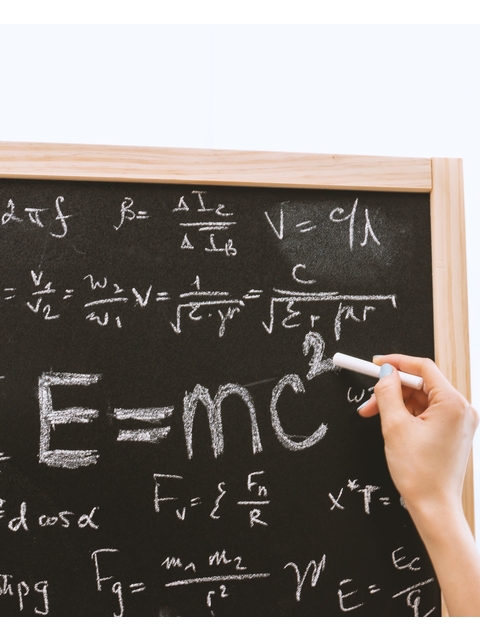 2πf β= ΔI_C/ΔI_B V=c/λ
= v₁/v₂ = w₂/w₁ V= 1/√ε·μ = c/√ε_r μ_r
E=mc²
F_v={ F_n/R X*T=
d cosα
F_g= m₁ m₂/r² E= E_C/q